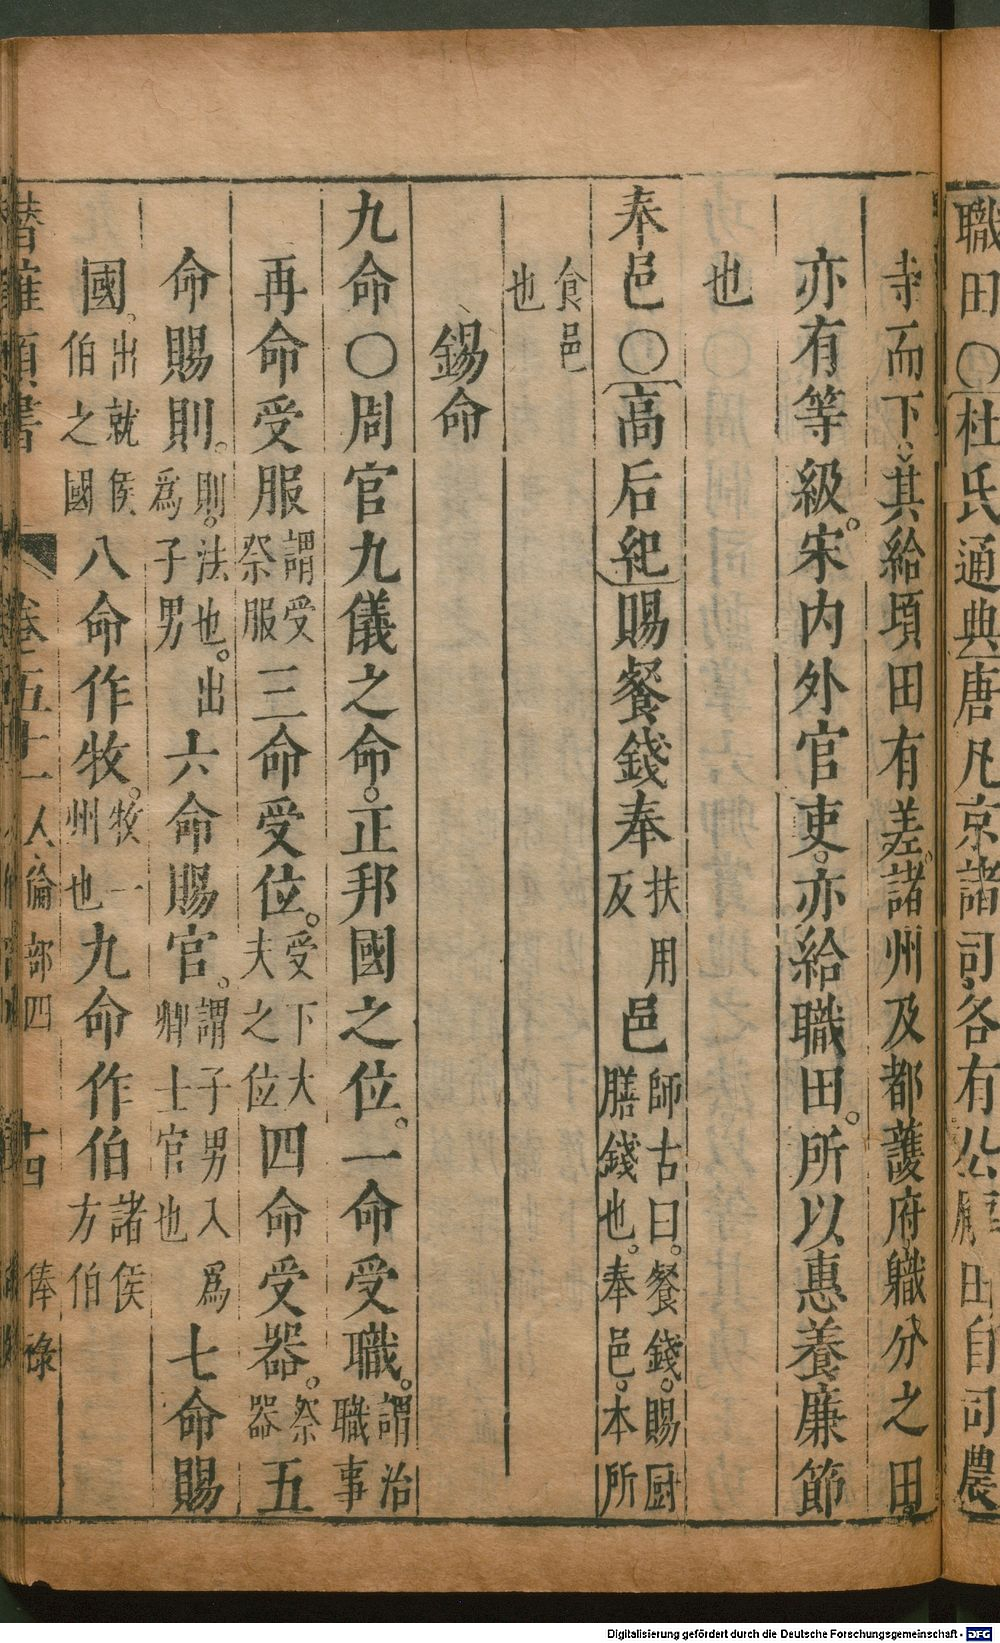 職田○杜氏通典唐凡京諸司各有公廨田自司農
寺而下其給頃田有差諸州及都護府職分之田
亦有等級宋内外官吏亦給職田所以惠養廉節
也
奉邑○高后紀賜餐錢奉扶用反邑師古曰餐錢賜厨膳錢也奉邑本所
食邑也
錫命
九命○周官九儀之命正邦國之位一命受職謂治職事
再命受服謂受祭服三命受位受下大夫之位四命受器祭器五
命賜則則法也出為子男六命賜官謂子男入為卿士官也七命賜
國出就侯伯之國八命作牧牧一州也九命作伯諸侯方伯
潜確類書 卷五十一 人倫部四 十四 俸祿
Digitalisierung gefördert durch die Deutsche Forschungsgemeinschaft - DFG